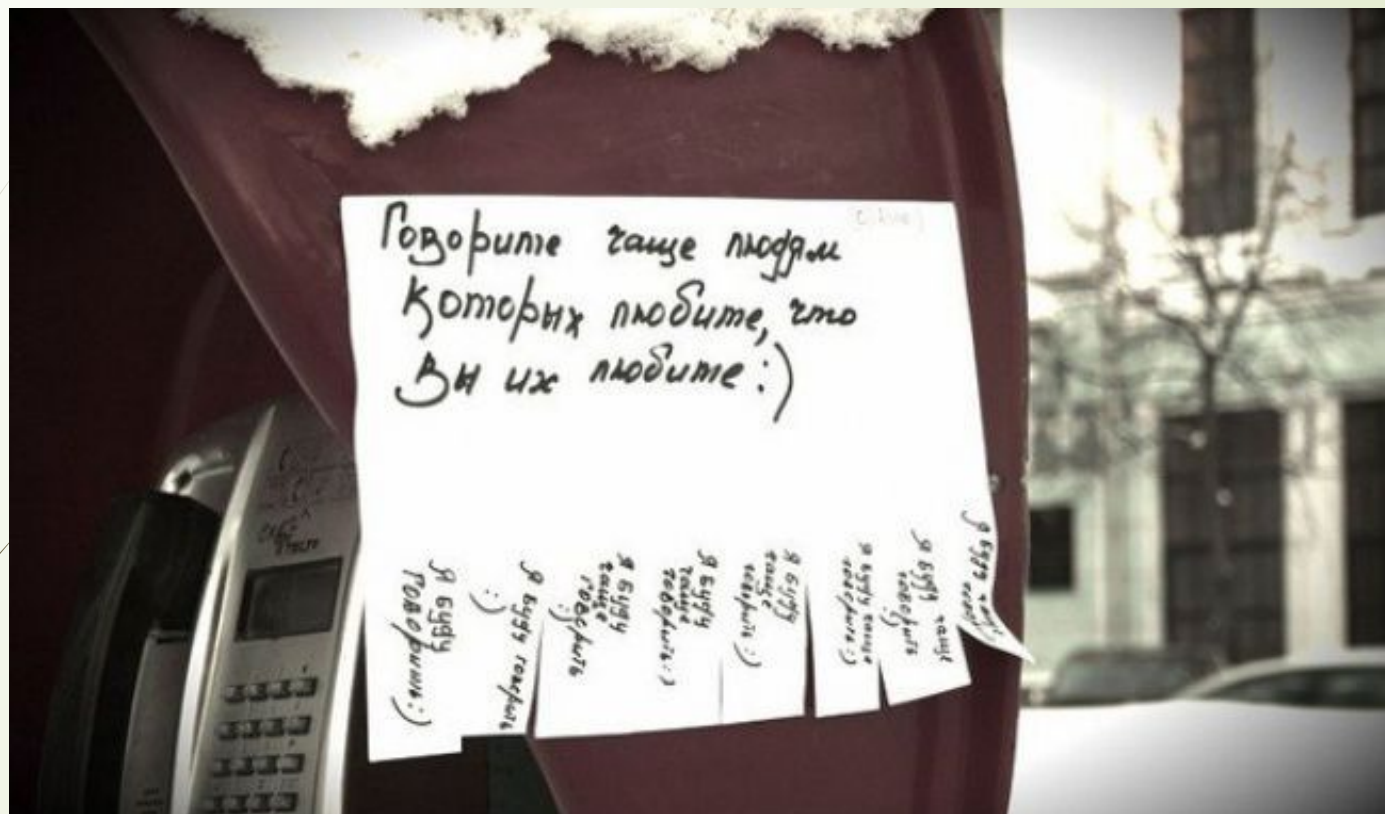 Говорите чаще людям
которых любите, что
Вы их любите :)
Я буду
говорить :)
Я буду говорить
:)
Я буду
чаще
говорить
:)
Я буду
чаще
говорить :)
Я буду
чаще
говорить :)
Я буду чаще
говорить :)
Я буду чаще
говорить
:)
Я буду